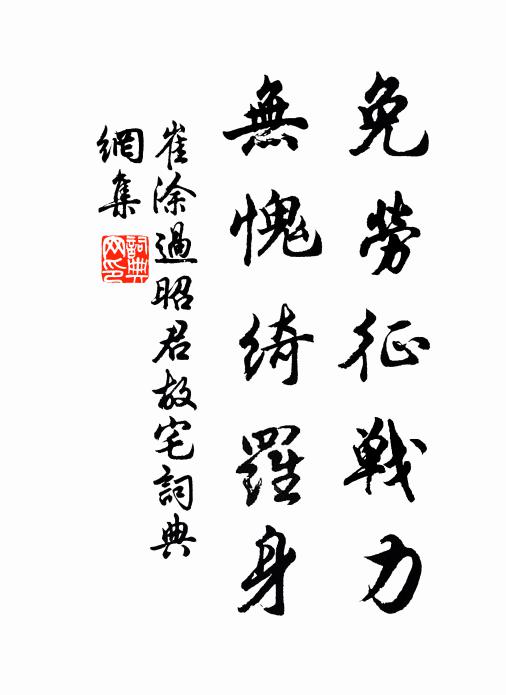 免勞征戰力
無愧綺羅身
崔涂過昭君故宅詞典
網集
詞典網印